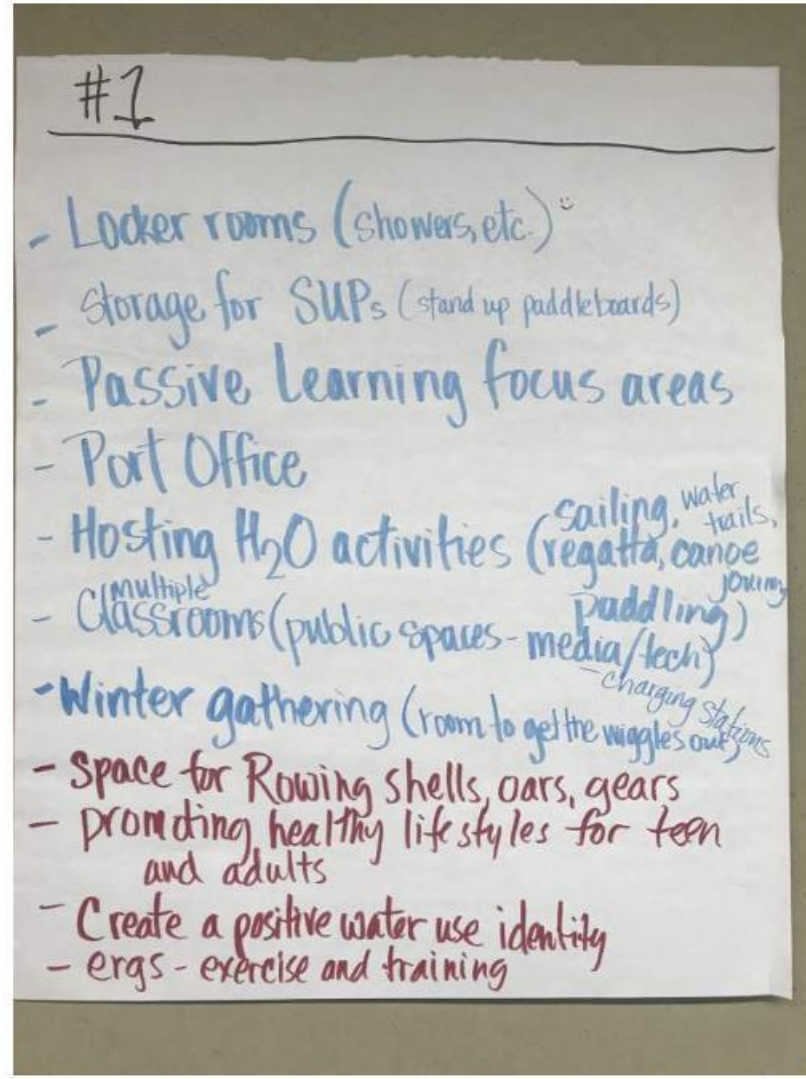 #1
- Locker rooms (showers, etc.)
- Storage for SUPs (stand up paddleboards)
- Passive Learning focus areas
- Port Office
- Hosting H₂O activities (sailing, water trails,
regatta, canoe journey
paddling)
- multiple Classrooms (public spaces - media/tech)
- charging stations
- Winter gathering (room to get the wiggles out)
- Space for Rowing shells, oars, gears
- promoting healthy lifestyles for teen
and adults
- Create a positive water use identity
- ergs - exercise and training